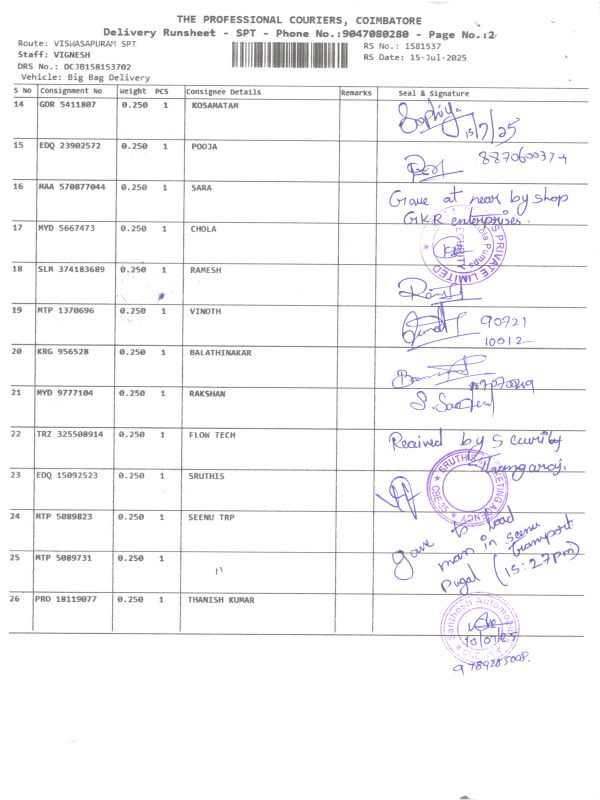 THE PROFESSIONAL COURIERS, COIMBATORE
Delivery Runsheet - SPT - Phone No.:9047080280 - Page No.:2
Route: VISWASAPURAM SPT
Staff: VIGNESH
DRS No.: DCJB158153702
Vehicle: Big Bag Delivery
RS No.: 1581537
RS Date: 15-Jul-2025
S No Consignment No Weight PCS Consignee Details Remarks Seal & Signature
14 GDR 5411807 0.250 1 KOSAMATAM Sophiya 15/7/25
15 EDQ 23902572 0.250 1 POOJA
16 MAA 570877044 0.250 1 SARA Gave at near by shop
GKR enterprises.
17 MYD 5667473 0.250 1 CHOLA
18 SLM 374183689 0.250 1 RAMESH
19 MTP 1370696 0.250 1 VINOTH 90921
10012-
20 KRG 956528 0.250 1 BALATHINAKAR
21 MYD 9777104 0.250 1 RAKSHAN
22 TRZ 325508914 0.250 1 FLOW TECH Received by Scurity
Thangaraj.
23 EDQ 15092523 0.250 1 SRUTHIS
24 MTP 5089823 0.250 1 SEENU TRP gave to load
man in seenu
transport
Pugal (15:27pm)
25 MTP 5089731 0.250 1 "
26 PRO 18119077 0.250 1 THANISH KUMAR
Santhosh Automo
9789285008.